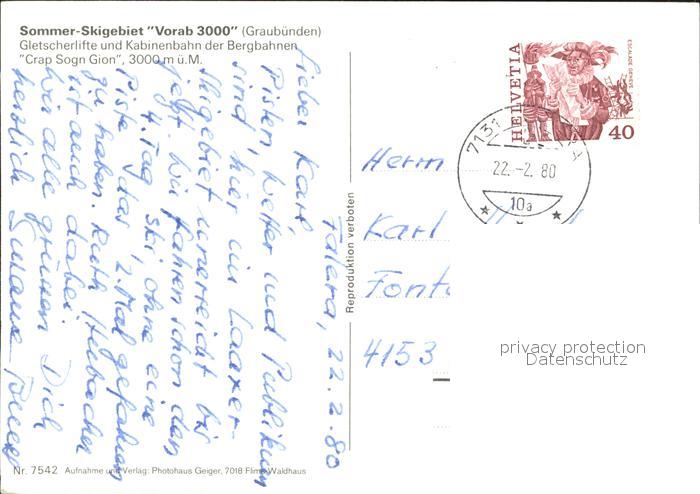 Sommer-Skigebiet "Vorab 3000" (Graubünden)
Gletscherlifte und Kabinenbahn der Bergbahnen
"Crap Sogn Gion", 3000 m ü.M.
Falera, 22.2.80
Lieber Karl
Pisten, Wetter und Publikum
sind, hier im Laaxer-
Skigebiet unerreicht bis
jetzt. Wir fahren schon den
4. Tag Ski, ohne eine
Piste das 2. Mal gefahren
zu haben. Ruth
ist auch dabei.
Wir alle grüssen Dich
herzlich Susanne
Reproduktion verboten
HELVETIA
ESCALADE GENÈVE
40
7131
22.-2.80
10a
Herrn
Karl
4153
privacy protection
Datenschutz
Nr. 7542 Aufnahme und Verlag: Photohaus Geiger, 7018 Flims Waldhaus